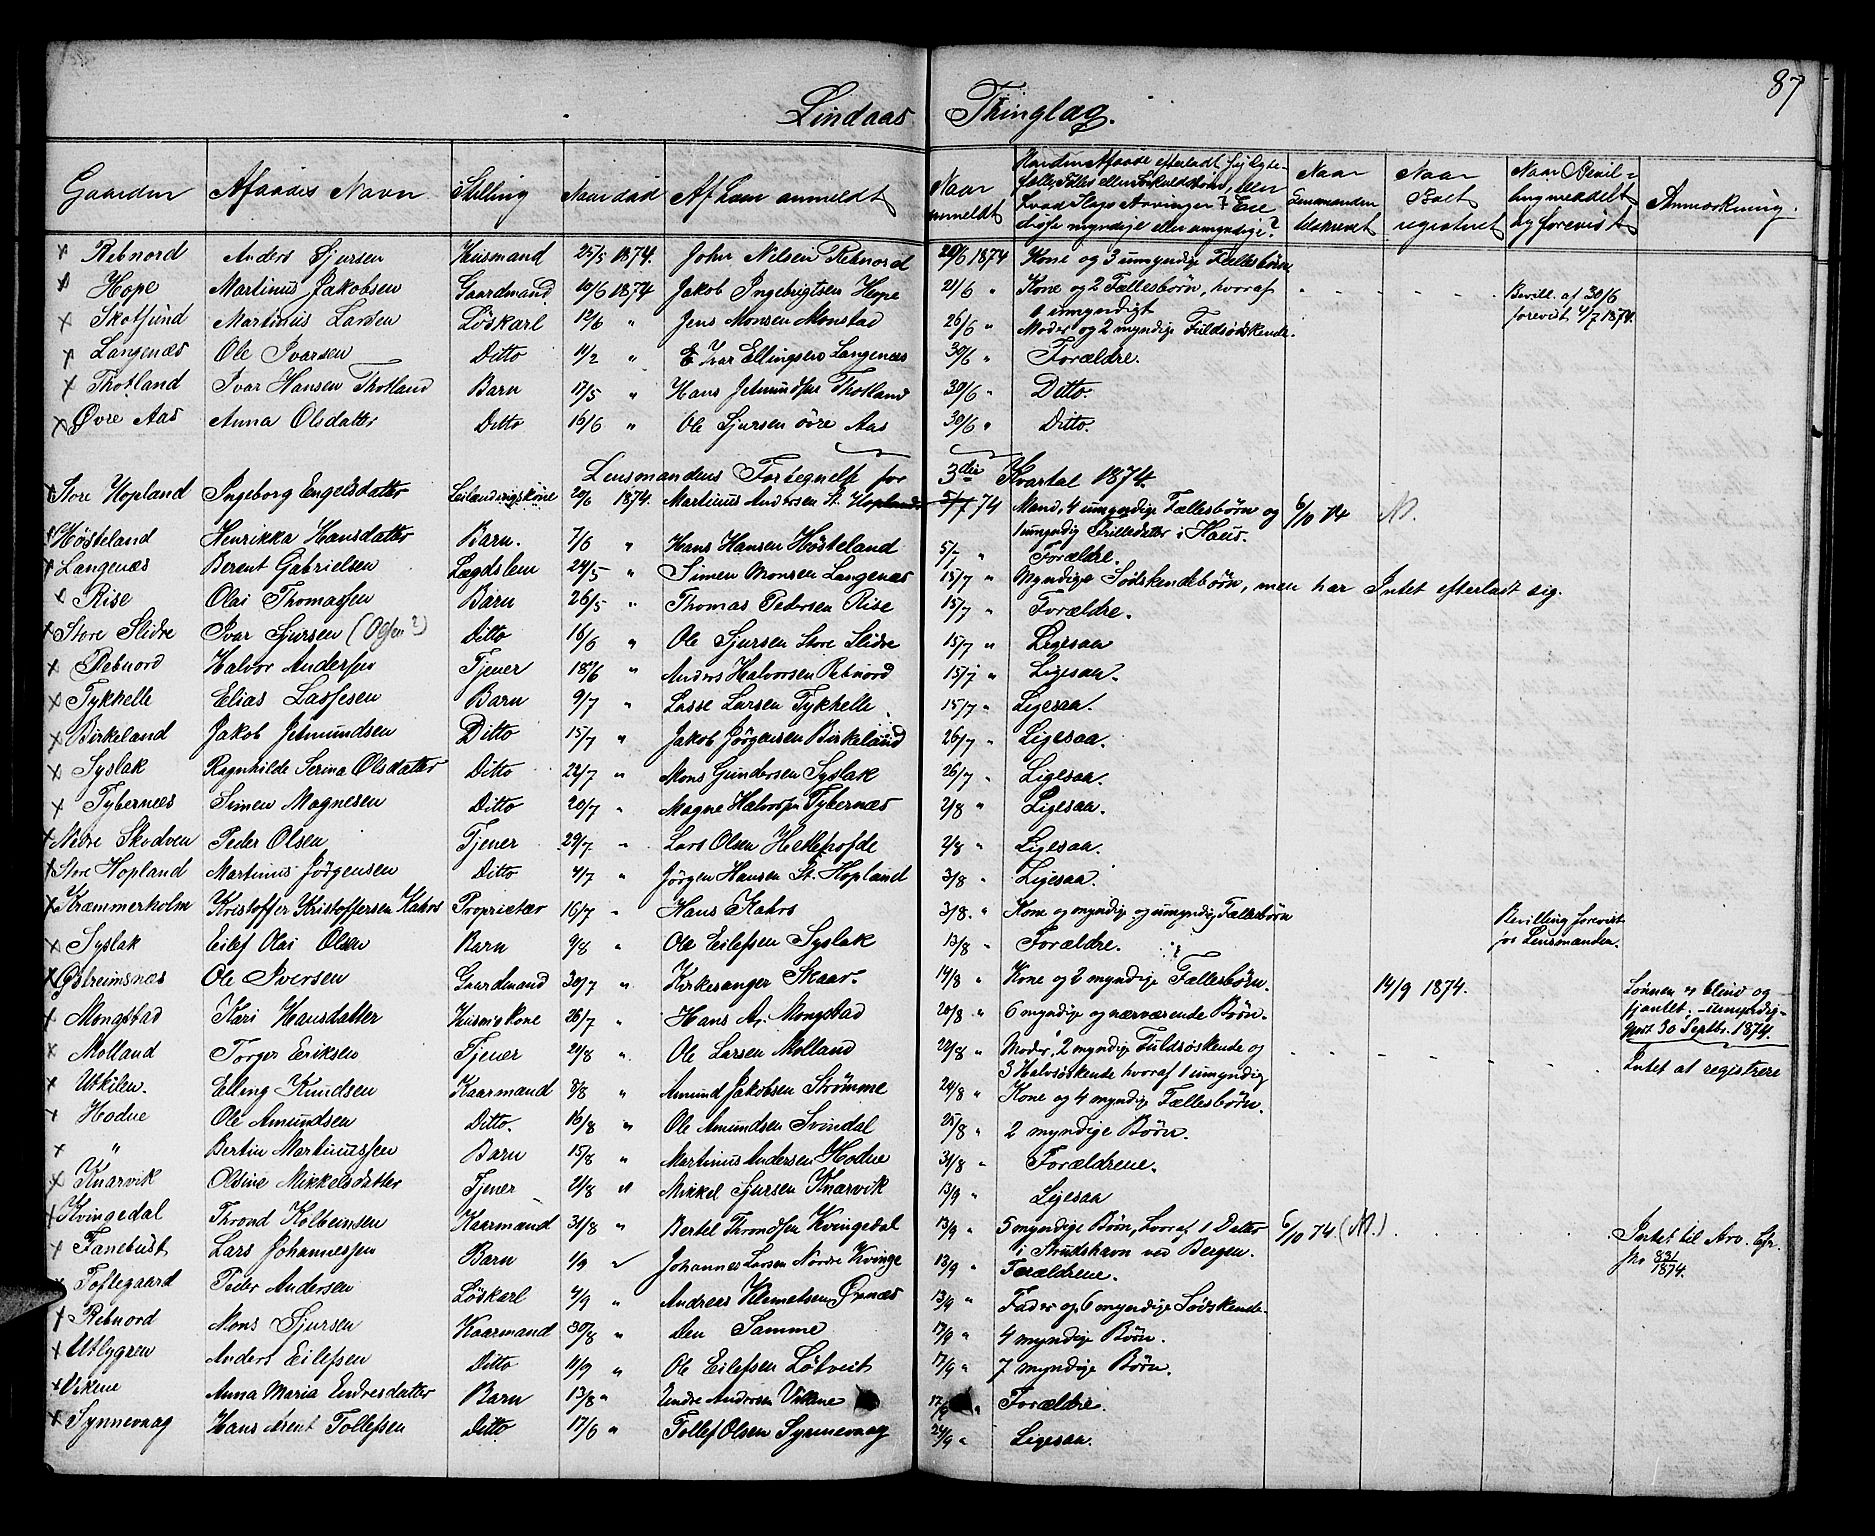 87
Lindaas Thinglag.
Gaarden Afdødes Navn Stilling Naar død Af hvem anmeldt Naar anmeldt Hvordan Afdøde efterladt sig Ægtefælle, Fælles eller Særkuldsbørn, eller hvad Slags Arvinger? Ere disse myndige eller umyndige? Naar Naar Boet registreret Naar Bevilling meddelt og forevist Anmærkning.
x Rebnord Anders Sjursen Husmand 25/5 1874. John Nilsen Rebnord 20/6 1874 Kone og 3 umyndige Fællesbørn
x Hope Martinus Jakobsen Gaardmand 10/6 1874 Jakob Ingebrigtsen Hope 21/6 " Kone og 2 Fællesbørn, hvoraf 1 umyndigt Bevill. af 30/6 forevist 4/7 1874.
x Skotsund Martinus Larsen Löskarl 12/6 " Jens Monsen Monstad 26/6 " Moder og 2 myndige Fuldsødskende.
x Langenæs Ole Ivarsen Ditto 11/2 " Ivar Ellingsen Langenæs 30/6 " Forældre.
x Thotland Ivar Hansen Thotland Barn 17/5 " Hans Jetmundsen Thotland 30/6 " Ditto.
x Øvre Aas Anna Olsdatter Ditto 16/6 " Ole Sjursen övre Aas 30/6 " Ditto.
Lensmandens Fortegnelse for 3die Kvartal 1874.
x Store Hopland Ingeborg Engelsdatter Leilændingskone 20/6 1874. Martinus Andersen St. Hopland. 5/7 74 Mand, 4 umyndige Fællesbørn og 1 umyndig Datter i Haus. 6/10 74 N.
Høsteland Henrikka Hansdatter Barn. 7/6 " Hans Hansen Høsteland 5/7 " Forældre.
Langenæs Berent Gabrielsen Lægdslem 24/5 " Simen Monsen Langenæs 15/7 " Myndige Sødskendebørn, men har Intet efterladt sig.
x Rise Olai Thomassen Barn 26/5 " Thomas Pedersen Rise 15/7 " Forældre.
x Store Slidre Ivar Sjursen (Olsen?) Ditto 16/6 " Ole Sjursen Store Slidre 15/7 " Ligesaa
x Rebnord Halvor Andersen Tjener 18/6 " Anders Halvorsen Rebnord 15/7 " Ligesaa.
x Tykhelle Elias Lassesen Barn 9/7 " Lasse Larsen Tykhelle 15/7 " Ligesaa.
x Birkeland Jakob Jetmundsen Ditto 15/7 " Jakob Jørgensen Birkeland 26/7 " Ligesaa.
x Syslak Ragnhilde Serina Olsdatter Ditto 22/7 " Mons Gundersen Syslak 26/7 " Ligesaa.
x Tybernæs Simen Magnesen Ditto 20/7 " Magne Halvorsen Tybernæs 2/8 " Ligesaa.
x Nedre Skodven Peder Olsen Tjener 29/7 " Lars Olsen 2/8 " Ligesaa.
x Store Hopland Martinus Jørgensen Ditto 4/7 " Jörgen Hansen St. Hopland 3/8 " Ligesaa.
x Kræmmerholm Kristoffer Kristoffersen Kahrs Proprietær 16/7 " Hans Kahrs 3/8. " Kone og myndige og umyndige Fællesbørn Bevilling forevist for Lensmanden.
x Syslak Eilef Olai Olsen Barn 9/8 " Ole Eilefsen Syslak 13/8 " Forældre.
x Østreimsnæs Ole Iversen Gaardmand 30/7 " Kirkesanger Skaar. 14/8 " Kone og 2 myndige Fællesbørn. 14/9 1874. Sønnen er blind og umyndig- 30 Septbr. 1874.
x Mongstad Kari Hansdatter Husm.skone 26/7 " Hans A. Mongstad 20/8 " 6 myndige og nærværende Børn.
x Molland Torger Eeriksen Tjener 21/8 " Ole Larsen Molland 22/8 " Moder, 2 myndige Fuldsøskende og 3 Halvsøskende hvoraf 1 umyndig Intet at registrere
x Utkilen. Elling Knudsen Kaarmand 8/8 " Amund Jakobsen Strömme 24/8 " Kone og 4 myndige Fællesbørn.
x Hodne Ole Amundsen Ditto. 16/8 " Ole Amundsen Svindal 25/8 " 2 myndige Børn.
x " Bertin Martinussen Barn 15/8 " Martinus Andersen Hodne 31/8 " Forældrene.
x Knarvik Oldsine Mikkelsdatter Tjener 21/8 " Mikkel Sjursen Knarvik 13/9 " Ligesaa
x Kvingedal Thrond Kolbeinsen Kaarmand 31/8 " Bertel Throndsen Kvingedal 13/9 " 5 myndige Børn, hvoraf 1 Datter i Strudshavn ved Bergen. 6/10 74 (N.) Intet til Arv. Cfr. Jno 831/1874.
x Fanebust Lars Johannessen Barn 1/9 " Johannes Larsen Nordre Kvinge 13/9 " Forældrene.
x Toftegaard Peder Andersen Löskarl 4/9 " Andreas Klemetsen Ørnæs 13/9 " Fader og 6 myndige Sødskende.
x Rebnord Mons Sjursen Kaarmand 30/8 " Den Samme 13/9 " 4 myndige Børn.
x Utlygren Anders Eilefsen Ditto 11/9 " Ole Eilefsen Lötveit 17/9 " 7 myndige Børn.
x Vikene Anna Maria Endresdatter Barn 13/8 " Endre Andersen Vikene 17/9 " Forældre.
x Synnevaag Hans Arent Tollefsen Ditto 17/6 " Tollef Olsen Synnevaag 24/9 " Ligesaa.